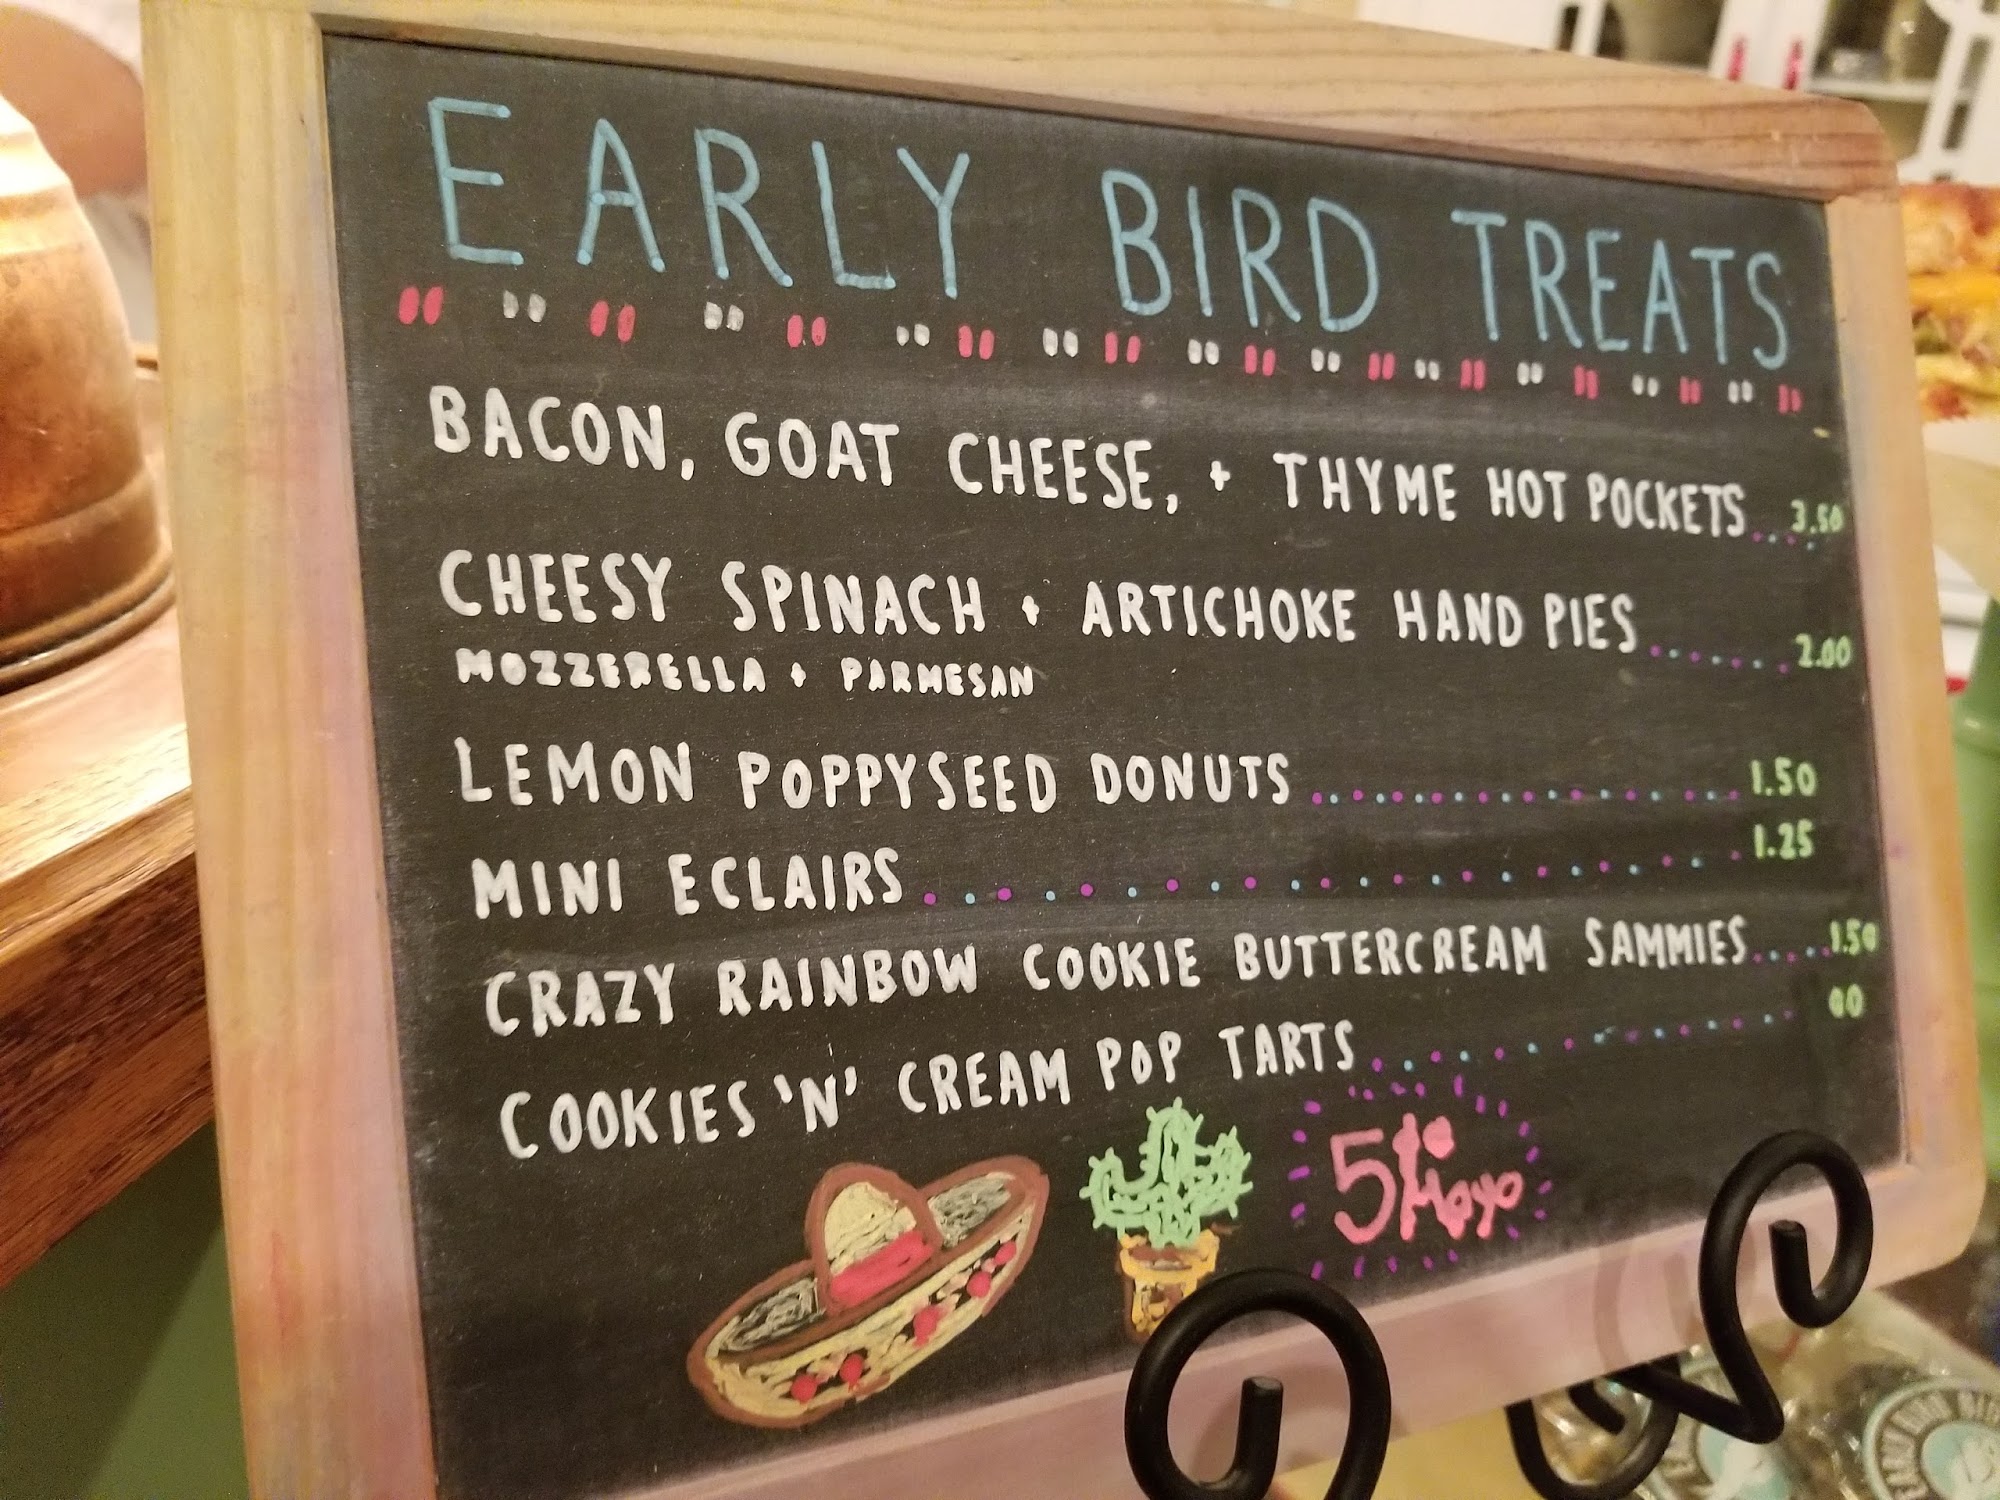 EARLY BIRD TREATS
BACON, GOAT CHEESE, + THYME HOT POCKETS.....3.50
CHEESY SPINACH + ARTICHOKE HAND PIES.......2.00
MOZZERELLA + PARMESAN
LEMON POPPYSEED DONUTS..................1.50
MINI ECLAIRS....................1.25
CRAZY RAINBOW COOKIE BUTTERCREAM SAMMIES.....1.50
COOKIES 'N' CREAM POP TARTS...............
5 de Mayo
EARLY BIRD